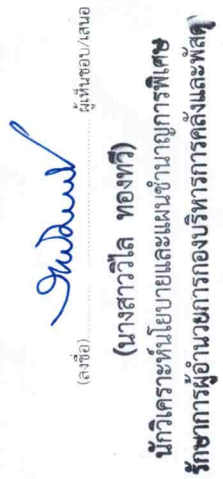 (ลงชื่อ)........................ผู้เห็นชอบ/เสนอ
(นางสาววิไล ทองทวี)
นักวิเคราะห์นโยบายและแผนชำนาญการพิเศษ
รักษาการผู้อำนวยการกองบริหารการคลังและพัสดุ